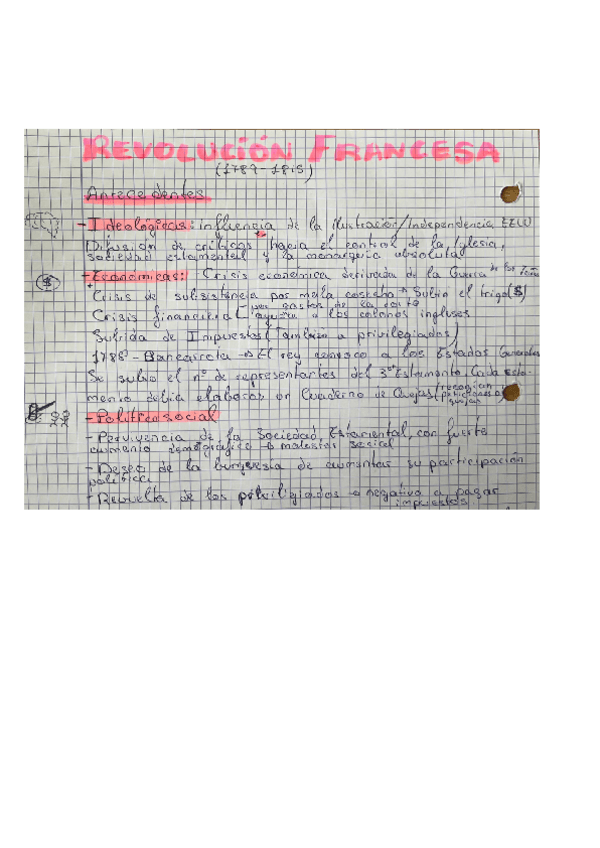 REVOLUCIÓN FRANCESA
(1789-1815)
Antecedentes
- Ideológicas: influencia de la Ilustración/Independencia EEUU
Difusión de críticas hacia el control de la Iglesia,
sociedad estamental y la monarquía absoluta
- Económicas: Crisis económica derivada de la Guerra de los 7 años
Crisis de subsistencia por mala cosecha → Subió el trigo ($)
Crisis financiera por gastos de la corte
ayuda a los colonos ingleses
Subida de Impuestos (También a privilegiados)
1788 - Bancarrota → El rey convocó a los Estados Generales
Se subió el nº de representantes del 3º Estamento. Cada esta-
mento debía elaborar un Cuaderno de Quejas (recogían peticiones o quejas
$
- Politicosocial
- Pervivencia de la Sociedad Estamental, con fuerte
aumento demográfico → malestar social
- Deseo de la burguesía de aumentar su participación
política
- Revuelta de los privilegiados → negativa a pagar
impuestos